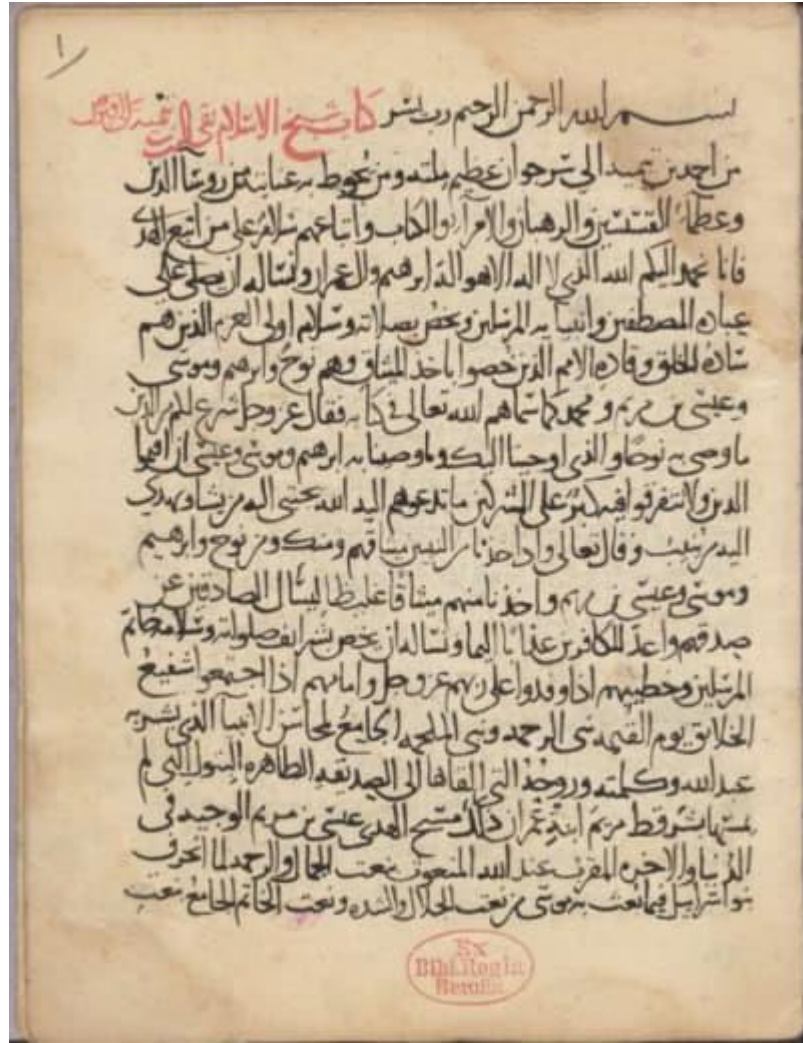 ١
بسم الله الرحمن الرحيم رب يسر كتاب شيخ الاسلام تقي الدين
من احمد بن تيميه الى سرجوان عظيم ملته ومن تحوط به عنايته من روسآ الدين
وعظمآء القسيسين والرهبان والامرآء والكتاب واتباعهم سلام على من اتبع الهدى
فانا نحمد اليكم الله الذي لا اله الا هو اله ابرهيم وال عمران ونساله ان يصلي على
عباده المصطفين وانبيايه المرسلين ويخص بصلاته وسلامه اولى العزم الذين هم
ساده الخلق وقاده الامم الذين خصوا باخذ الميثاق وهم نوح وابرهيم وموسى
وعيسى بن مريم ومحمد كما سماهم الله تعالى في كتابه فقال عز وجل شرع لكم من الدين
ما وصى به نوحا والذي اوحينا اليك وما وصينا به ابرهيم وموسى وعيسى ان اقيموا
الدين ولا تتفرقوا فيه كبر على المشركين ما تدعوهم اليه الله يجتبي اليه من يشا ويهدي
اليه من ينيب وقال تعالى واذ اخذنا من النبيين ميثاقهم ومنك ومن نوح وابرهيم
وموسى وعيسى بن مريم واخذنا منهم ميثاقا غليظا ليسال الصادقين عن
صدقهم واعد للكافرين عذابا اليما ونساله ان يخص بشرايف صلواته وسلامه خاتم
المرسلين وخطيبهم اذا وفدوا على ربهم عز وجل وامامهم اذا اجتمعوا شفيع
الخلايق يوم القيمه نبي الرحمه ونبي الملحمه الجامع لمحاسن الانبيا الذي بشر به
عبد الله وكلمته وروحه التي القاها الى الصديقه الطاهره البتول التي لم
يمسها بشر قط مريم ابنة عمران ذلك مسيح الهدى عيسى بن مريم الوجيه في
الدنيا والاخره المقرب عند الله المنعوت بنعت الجمال والرحمه لما انحرف
بنو اسرايل فيما بعث به موسى من نعت الجلال والشده وبعث الخاتم الجامع بنعت
Ex
Bibl. Regia
Berolin.